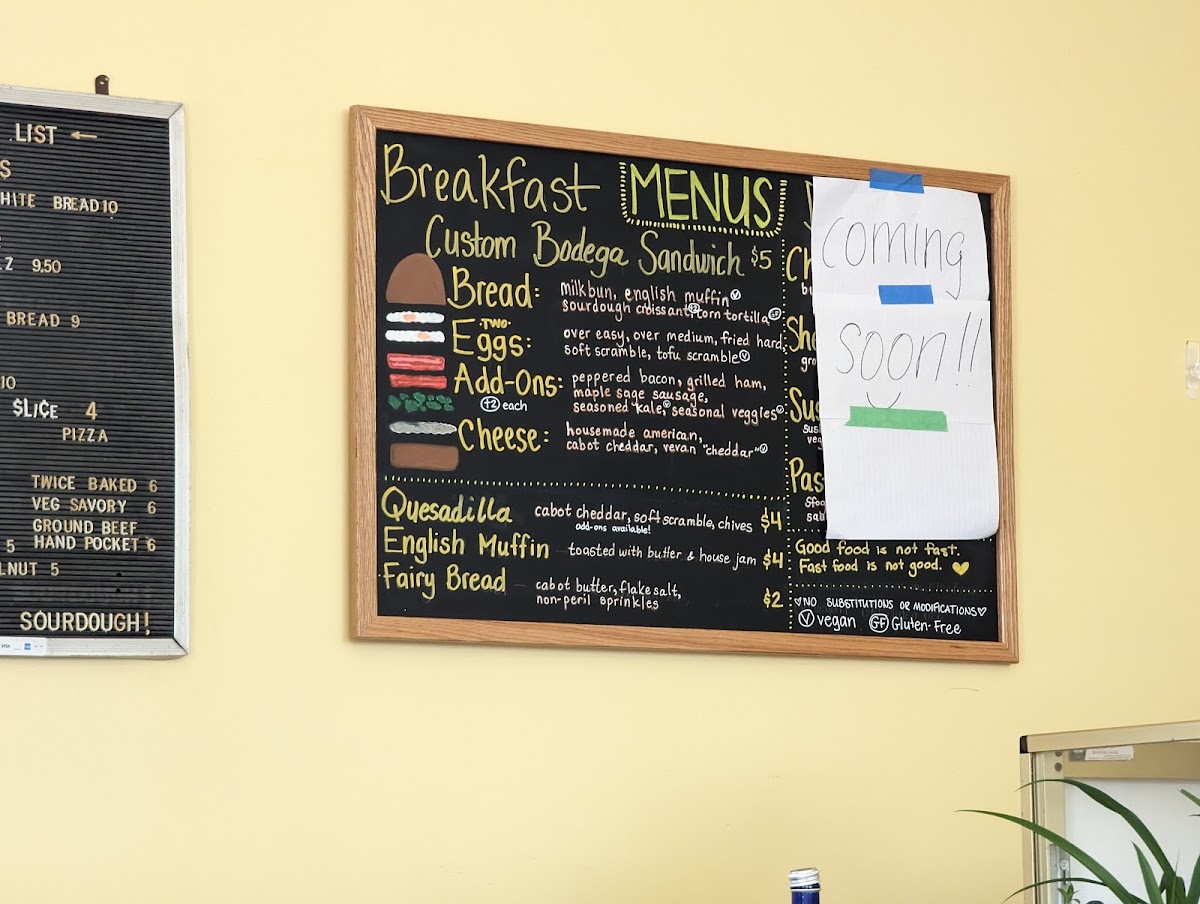 .LIST ←
S
HITE BREAD 10
Z 9.50
BREAD 9
10
$LICE 4
PIZZA
TWICE BAKED 6
VEG SAVORY 6
GROUND BEEF
5 HAND POCKET 6
LNUT 5
SOURDOUGH!
VISA
Breakfast MENUS
Custom Bodega Sandwich $5
Bread: milkbun, english muffin Ⓥ
sourdough croissant +2 corn tortilla GF
TWO
Eggs: over easy, over medium, fried hard,
soft scramble, tofu scramble Ⓥ
Add-Ons: peppered bacon, grilled ham,
+2 each maple sage sausage,
seasoned kale, Ⓥ seasonal veggies Ⓥ
Cheese: housemade american,
cabot cheddar, vevan "cheddar" Ⓥ
Quesadilla cabot cheddar, soft scramble, chives $4
add-ons available!
English Muffin toasted with butter & house jam $4
Fairy Bread cabot butter, flake salt,
non-peril sprinkles $2
Ch
bu
She
gro
Sus
sus
veg
Pas
sfog
sal
coming
soon!!
Good food is not fast.
Fast food is not good. ♥
♡NO SUBSTITUTIONS OR MODIFICATIONS♡
Ⓥ vegan GF Gluten-Free